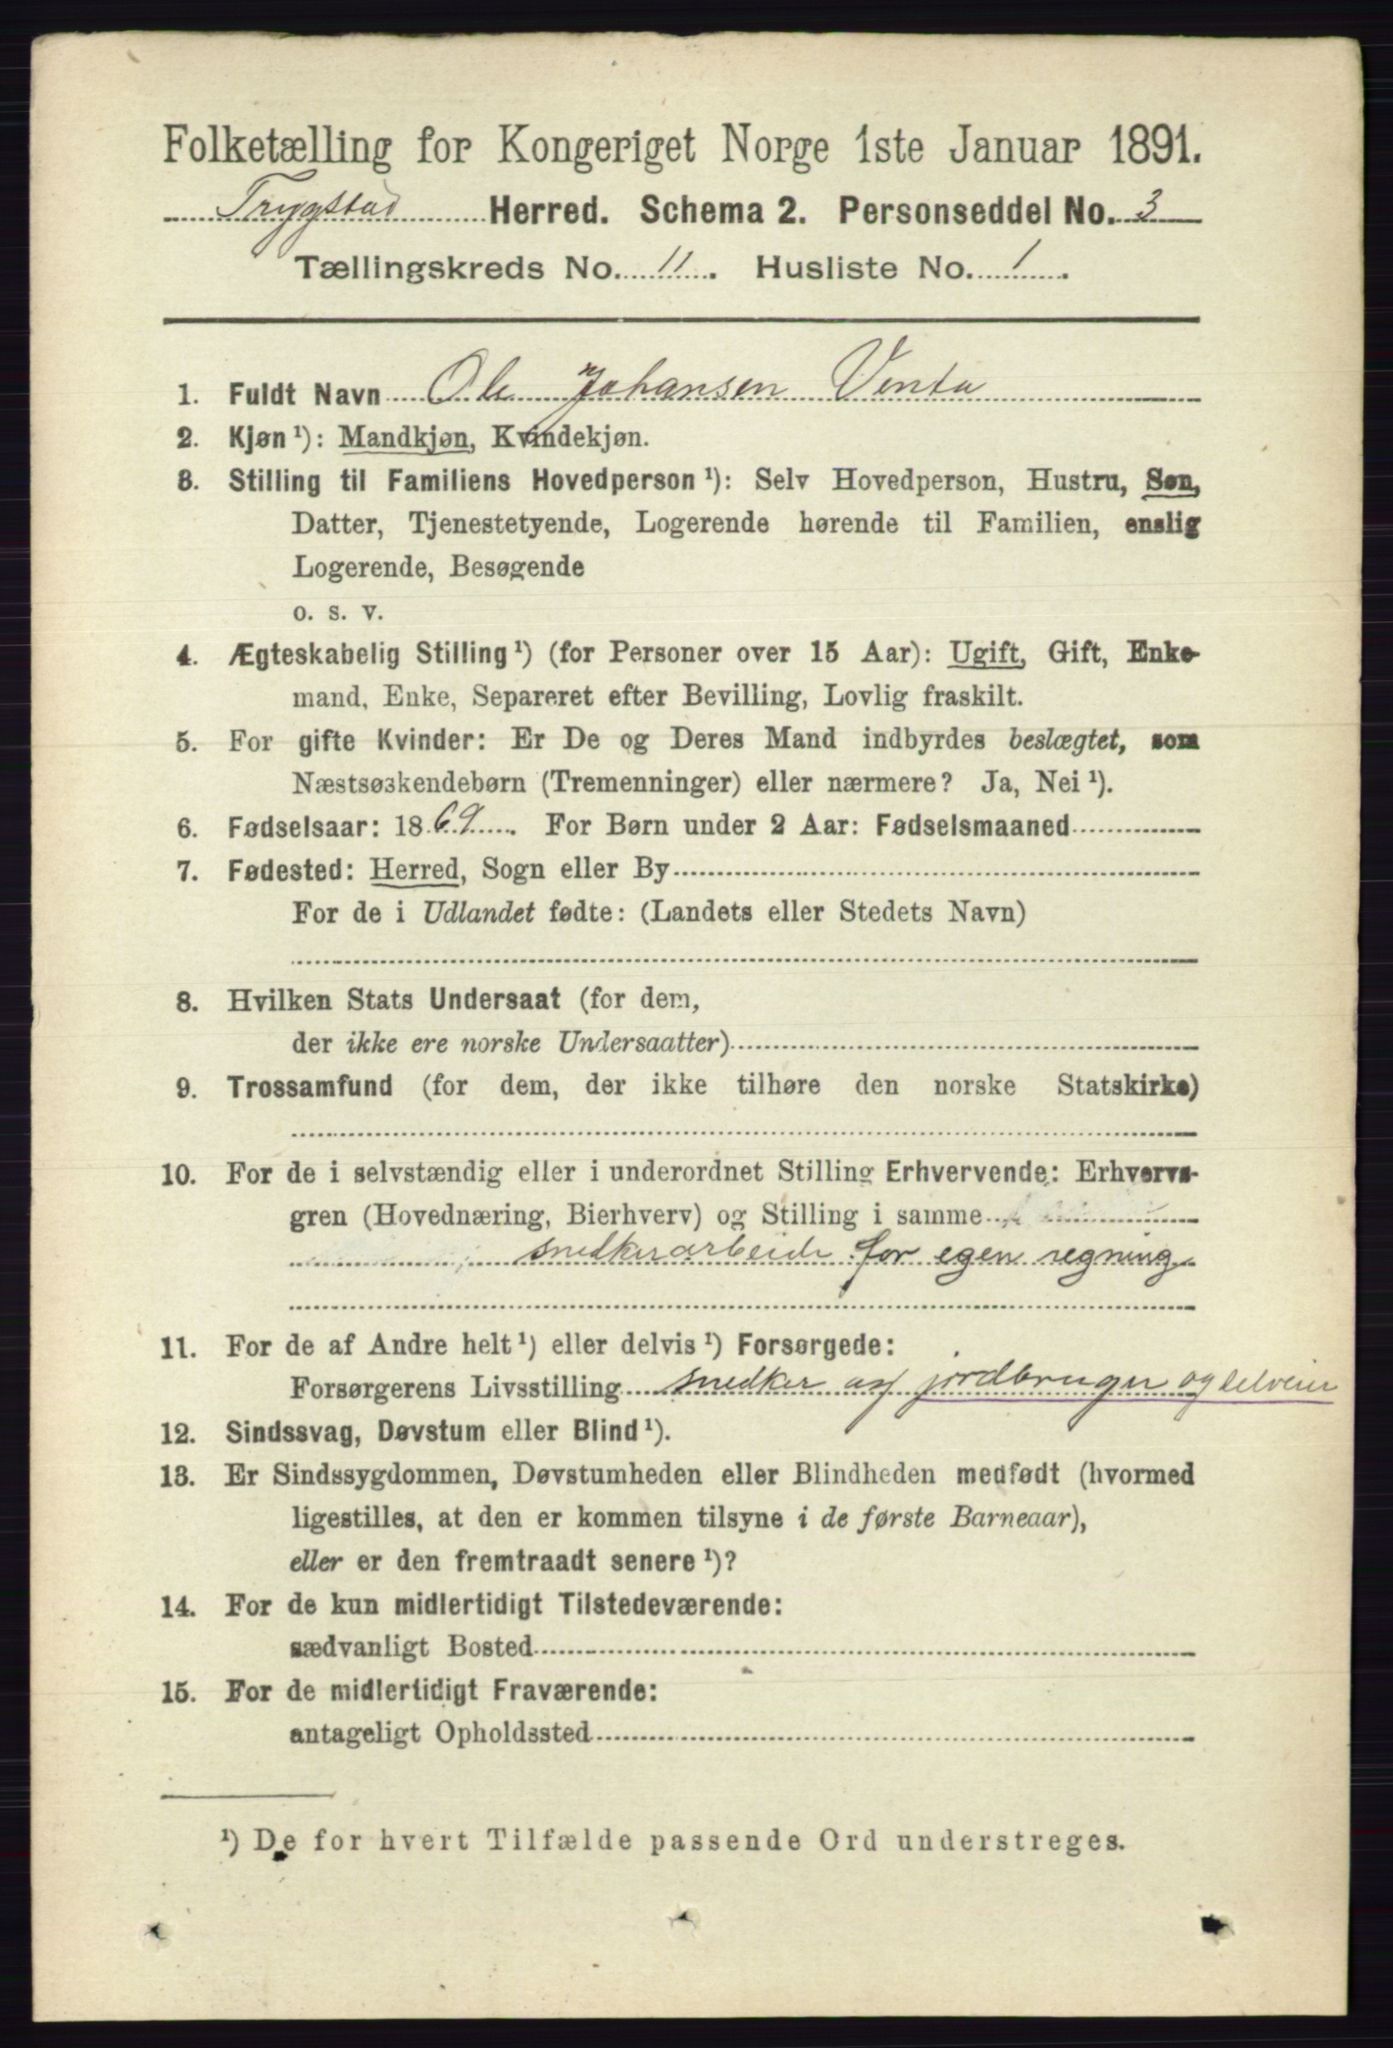 Folketælling for Kongeriget Norge 1ste Januar 1891.
Trygstad Herred. Schema 2. Personseddel No. 3
Tællingskreds No. 11. Husliste No. 1.
1. Fuldt Navn Ole Johansen Venta
2. Kjøn ¹): Mandkjøn, Kvindekjøn.
3. Stilling til Familiens Hovedperson ¹): Selv Hovedperson, Hustru, Søn,
Datter, Tjenestetyende, Logerende hørende til Familien, enslig
Logerende, Besøgende
o. s. v.
4. Ægteskabelig Stilling ¹) (for Personer over 15 Aar): Ugift, Gift, Enke-
mand, Enke, Separeret efter Bevilling, Lovlig fraskilt.
5. For gifte Kvinder: Er De og Deres Mand indbyrdes beslægtet, som
Næstsøskendebørn (Tremenninger) eller nærmere? Ja, Nei ¹).
6. Fødselsaar: 1869. For Børn under 2 Aar: Fødselsmaaned
7. Fødested: Herred, Sogn eller By
For de i Udlandet fødte: (Landets eller Stedets Navn)
8. Hvilken Stats Undersaat (for dem,
der ikke ere norske Undersaatter)
9. Trossamfund (for dem, der ikke tilhøre den norske Statskirke)
10. For de i selvstændig eller i underordnet Stilling Erhvervende: Erhvervs-
gren (Hovednæring, Bierhverv) og Stilling i samme
snedkerarbeide for egen regning
11. For de af Andre helt ¹) eller delvis ¹) Forsørgede:
Forsørgerens Livsstilling snedker as jordbruger og selveier
12. Sindssvag, Døvstum eller Blind ¹).
13. Er Sindssygdommen, Døvstumheden eller Blindheden medfødt (hvormed
ligestilles, at den er kommen tilsyne i de første Barneaar),
eller er den fremtraadt senere ¹)?
14. For de kun midlertidigt Tilstedeværende:
sædvanligt Bosted
15. For de midlertidigt Fraværende:
antageligt Opholdssted
¹) De for hvert Tilfælde passende Ord understreges.